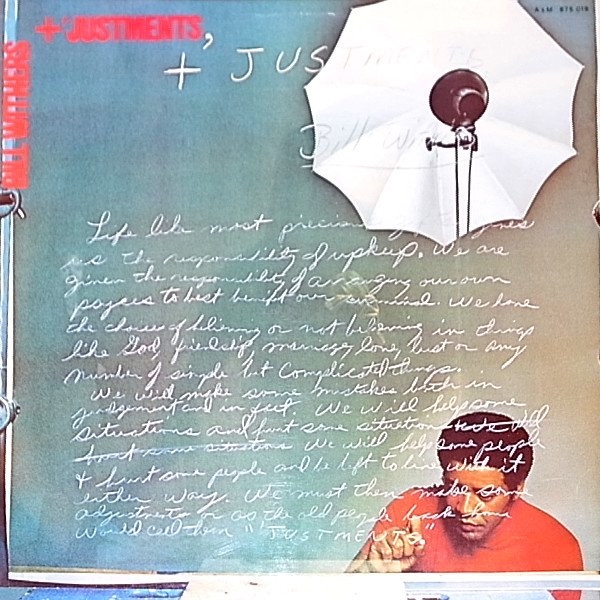 +'JUSTMENTS
A&M BTS 019
BILL WITHERS
+'JUSTMENTS
Bill
Life like most precious gives
us the responsibility of upkeep. We are
given the responsibility of arranging our own
psyces to best benefit our survival. We have
the choices of believing or not believing in things
like God, friendship, marriage, love, lust or any
number of simple but complicated things.
We will make some mistakes both in
judgement and in fact. We will help some
situations and hurt some situations We will
hurt some situations We will help some people
& hurt some people and be left to live with it
either way. We must then make some
adjustments or as the old people back home
would call them "'JUSTMENTS."